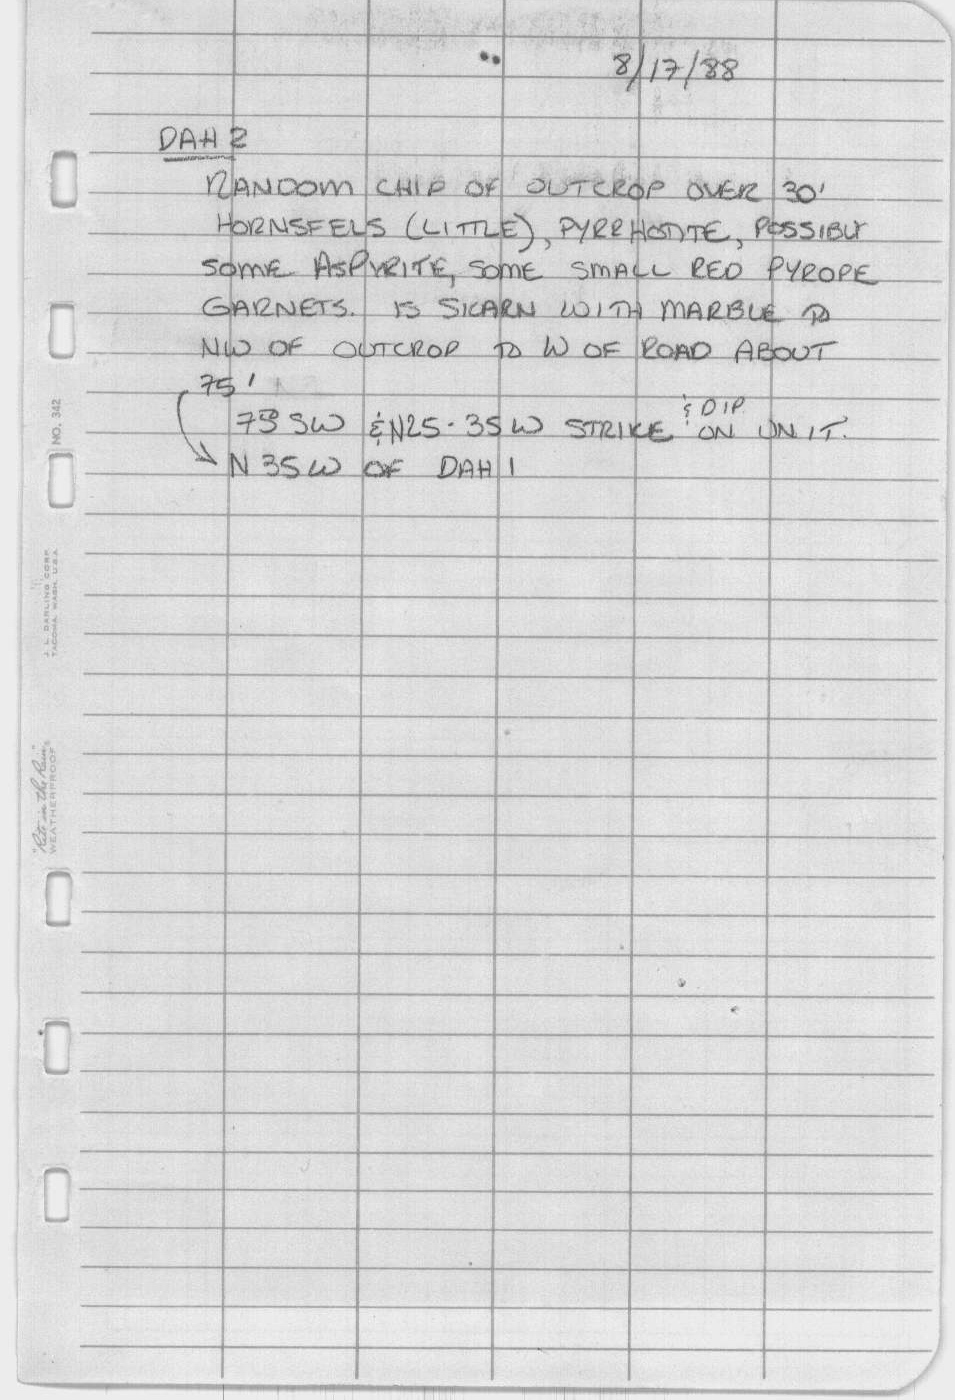 8/17/88
DAH 2
RANDOM CHIP OF OUTCROP OVER 30'
HORNSFELS (LITTLE), PYRRHOTITE, POSSIBLY
SOME ASPYRITE, SOME SMALL RED PYROPE
GARNETS. IS SKARN WITH MARBLE TO
NW OF OUTCROP TO W OF ROAD ABOUT
75'
& DIP
75 SW & N25-35W STRIKE ON UNIT.
N35W OF DAH 1
NO. 342
J. L. DARLING CORP.
TACOMA, WASH. U.S.A.
"Rite in the Rain"
WEATHERPROOF